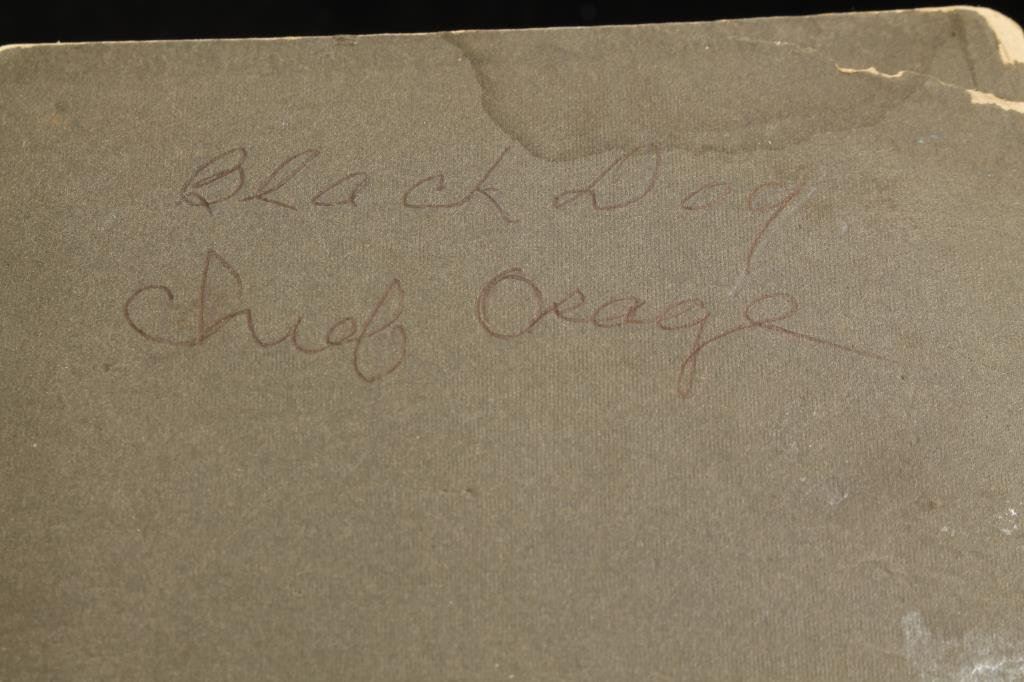 Black Dog
Chief Osage